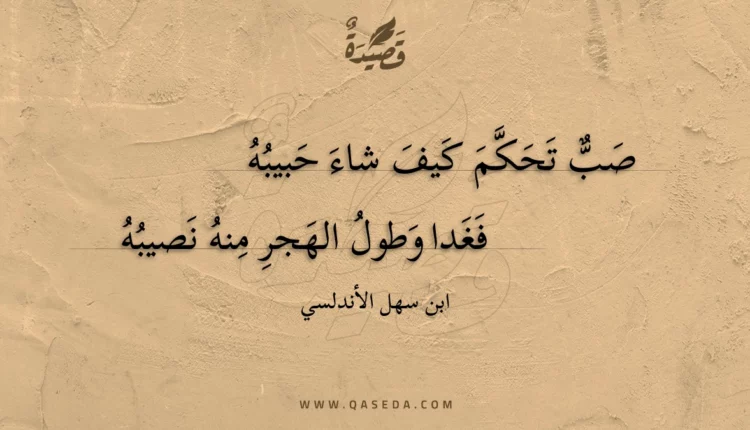 قَصِيدَةٌ
صَبٌّ تَحَكَّمَ كَيفَ شاءَ حَبيبُهُ
فَغَدا وَطولُ الهَجرِ مِنهُ نَصيبُهُ
ابن سهل الأندلسي
WWW.QASEDA.COM